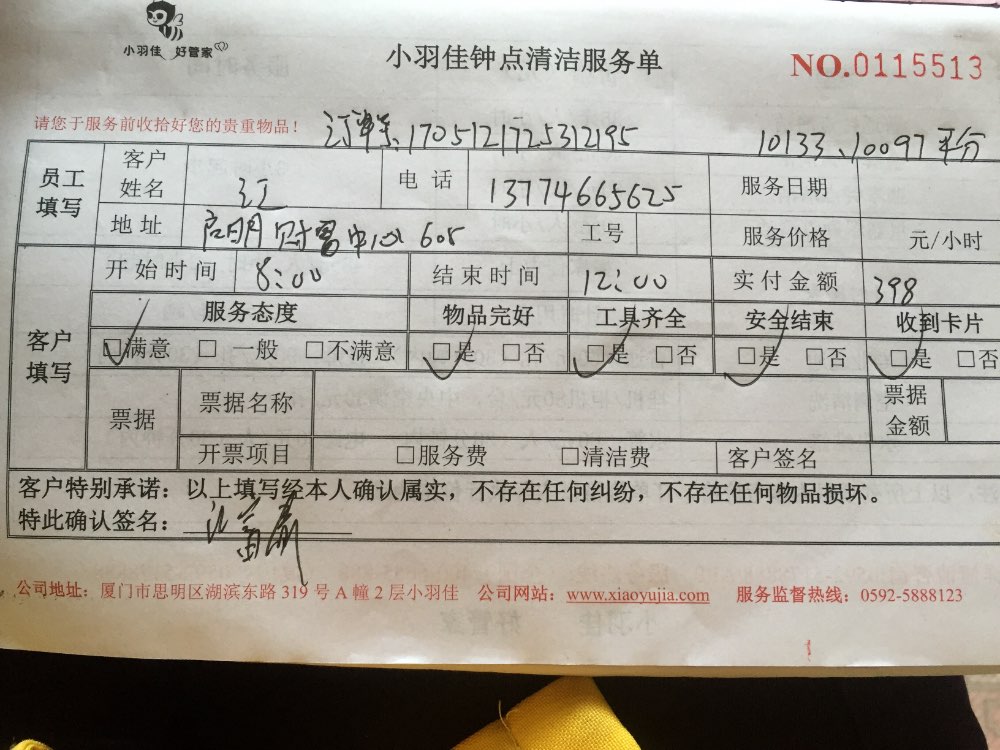 小羽佳 好管家
小羽佳钟点清洁服务单
NO.0115513
请您于服务前收拾好您的贵重物品！
1705121725312195 10133、10097平分
员工填写 客户姓名 江 电话 13774665625 服务日期
地址 启明财富中心 605 工号 服务价格 元/小时
客户填写 开始时间 8:00 结束时间 12:00 实付金额 398
服务态度 物品完好 工具齐全 安全结束 收到卡片
□满意 □ 一般 □不满意 □是 □否 □是 □否 □是 □否 □是 □否
票据 票据名称 票据金额
开票项目 □服务费 □清洁费 客户签名
客户特别承诺：以上填写经本人确认属实，不存在任何纠纷，不存在任何物品损坏。
特此确认签名：
公司地址：厦门市思明区湖滨东路 319 号 A 幢 2 层小羽佳 公司网站：www.xiaoyujia.com 服务监督热线：0592-5888123